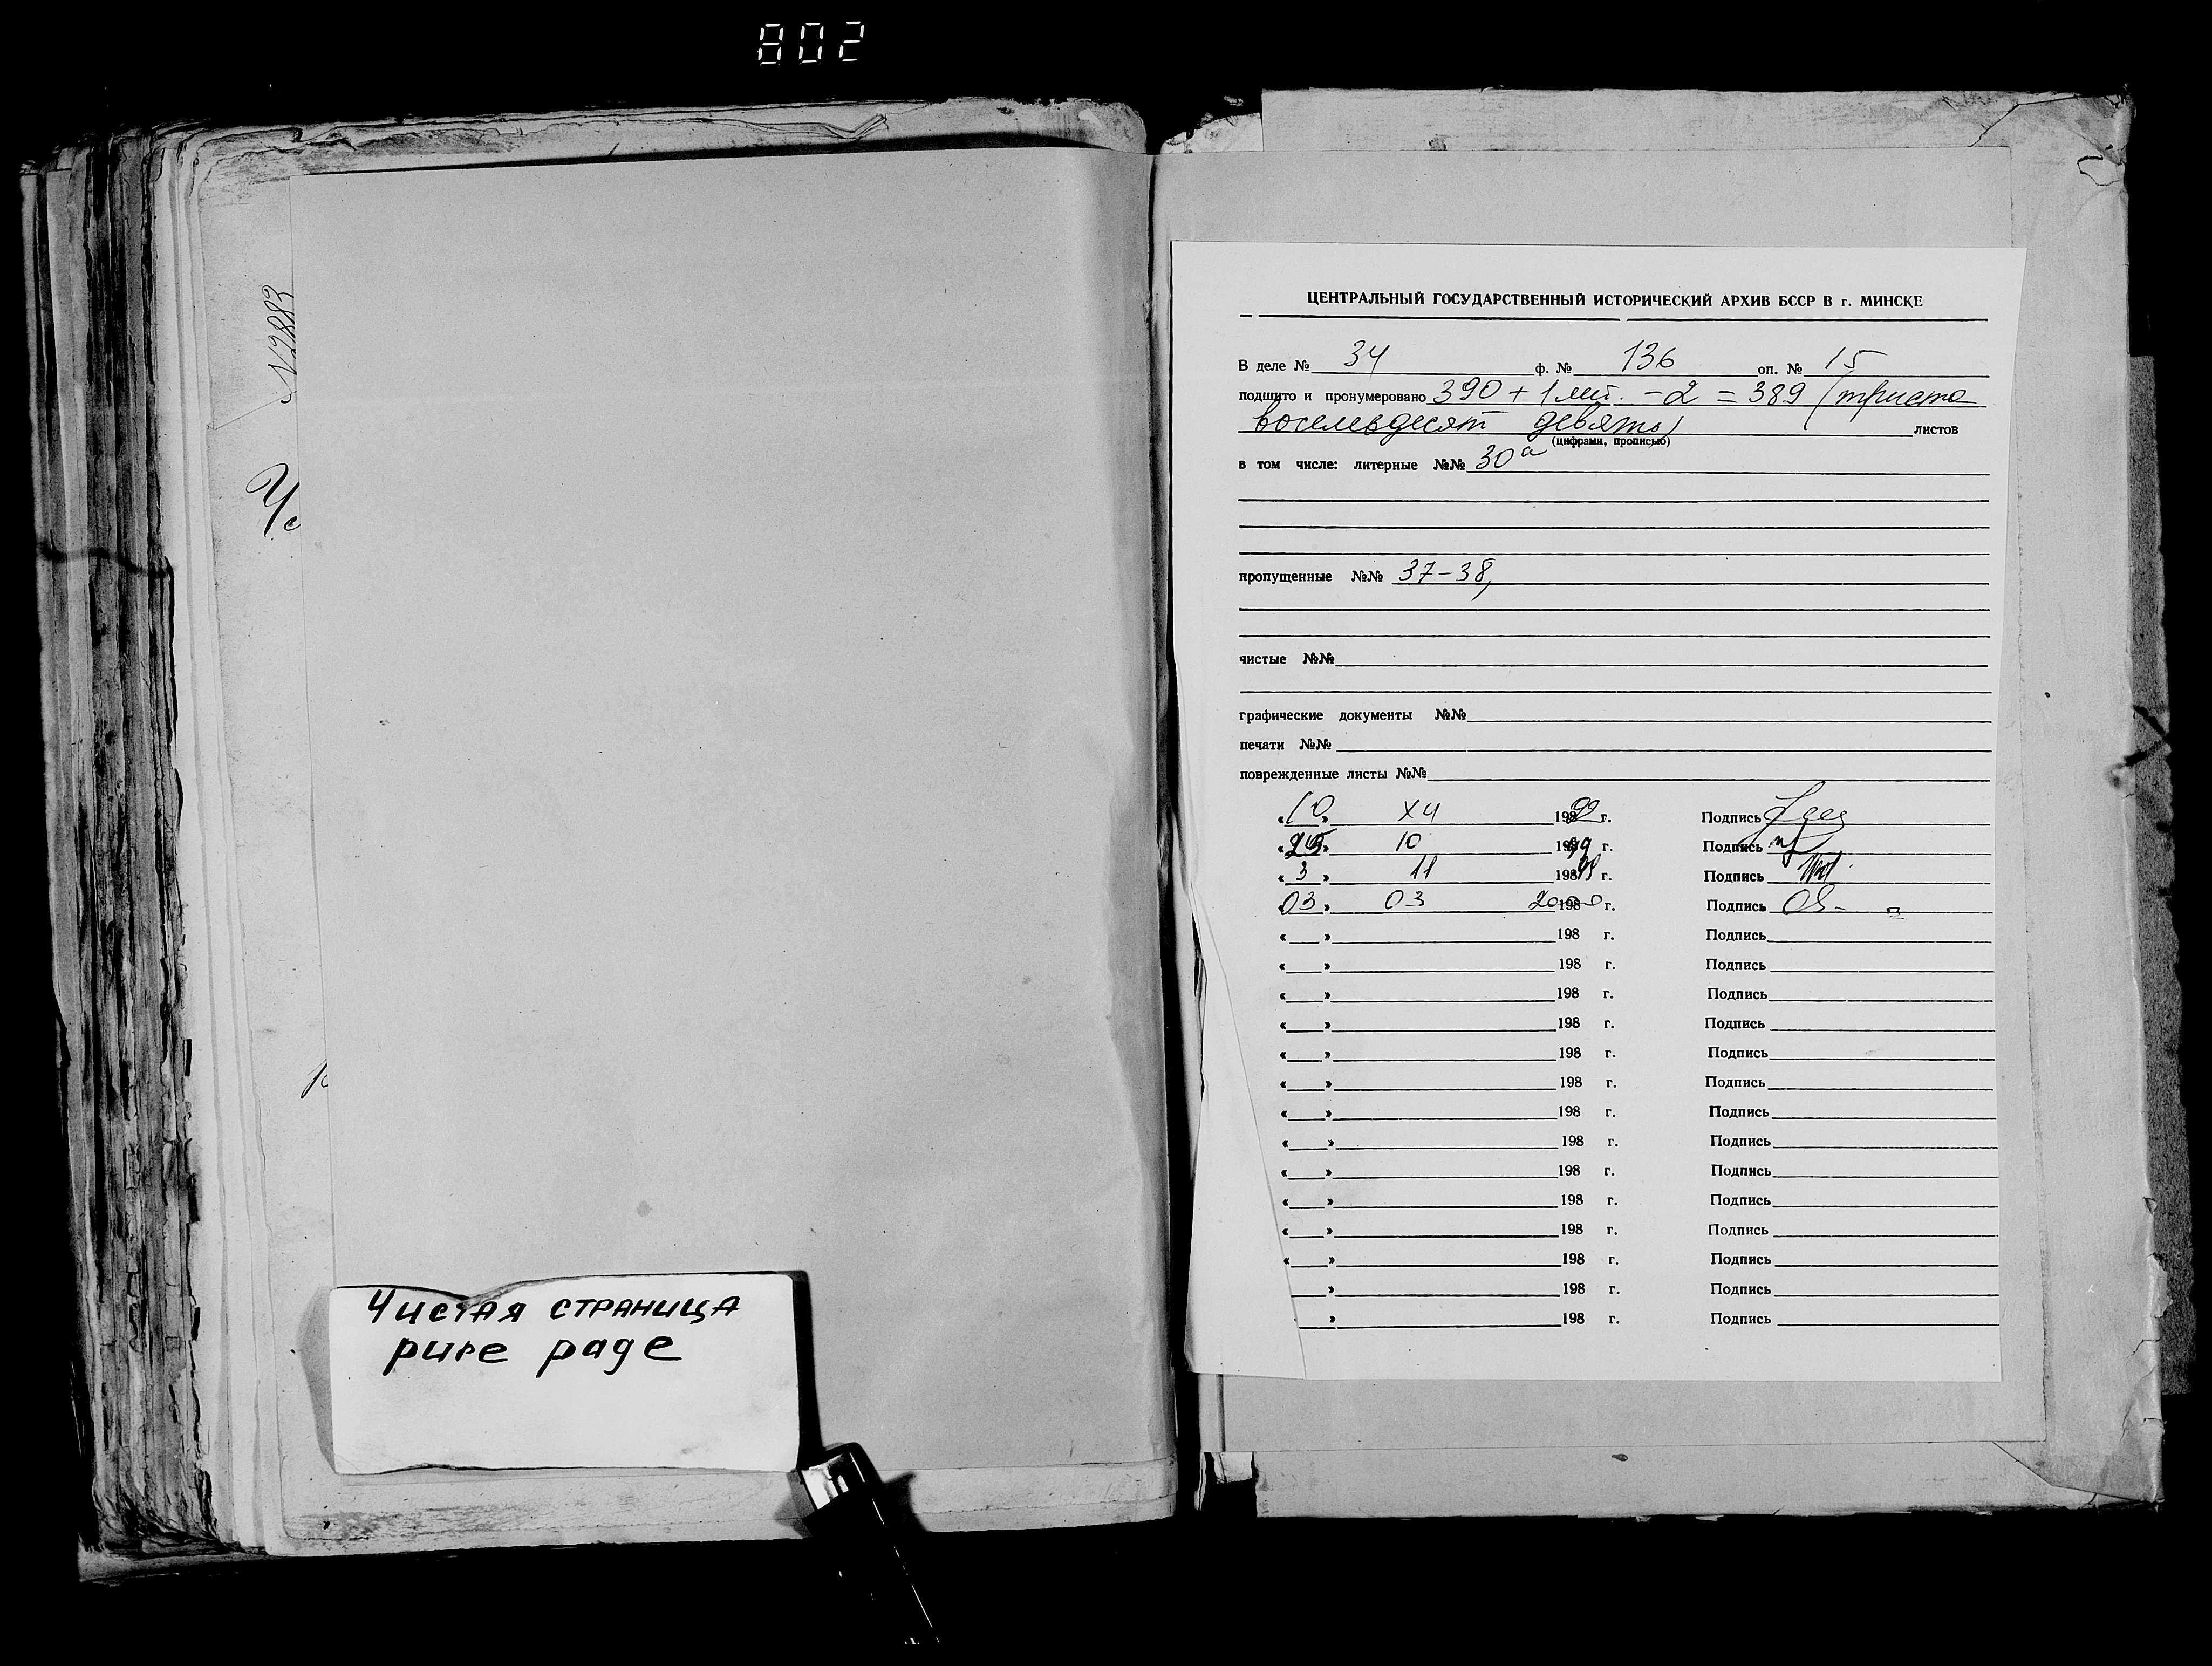 802
N2883
Чистая страница
pure page
ЦЕНТРАЛЬНЫЙ ГОСУДАРСТВЕННЫЙ ИСТОРИЧЕСКИЙ АРХИВ БССР В г. МИНСКЕ
В деле № 34 ф. № 136 оп. № 15
подшито и пронумеровано 390 + 1 лит. - 2 = 389 (триста
восемьдесят девять) листов
(цифрами, прописью)
в том числе: литерные №№ 30а
пропущенные №№ 37-38,
чистые №№
графические документы №№
печати №№
поврежденные листы №№
«10» 198 г. Подпись
«25» 10 1999 г. Подпись
«3» 11 198 г. Подпись
«03» 03 2000 198 г. Подпись
« » 198 г. Подпись
« » 198 г. Подпись
« » 198 г. Подпись
« » 198 г. Подпись
« » 198 г. Подпись
« » 198 г. Подпись
« » 198 г. Подпись
« » 198 г. Подпись
« » 198 г. Подпись
« » 198 г. Подпись
« » 198 г. Подпись
« » 198 г. Подпись
» 198 г. Подпись
» 198 г. Подпись